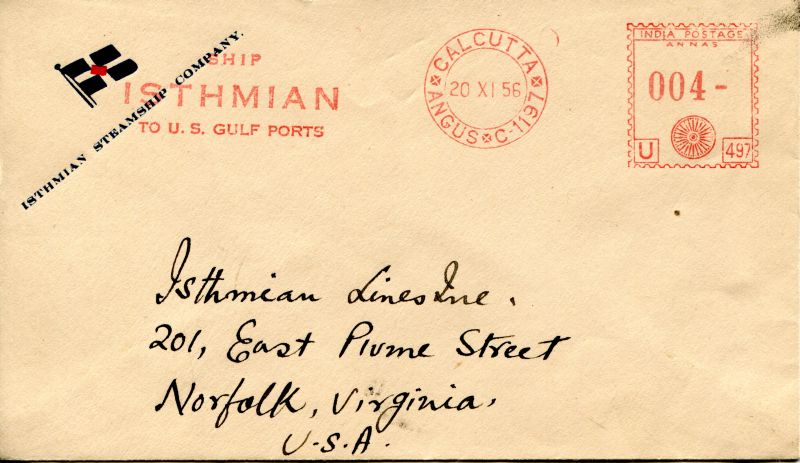 ISTHMIAN STEAMSHIP COMPANY.
SHIP
ISTHMIAN
TO U. S. GULF PORTS
CALCUTTA
20 XI 56
ANGUS C-1197
INDIA POSTAGE
ANNAS
004-
U 497
Isthmian Lines Inc.
201, East Plume Street
Norfolk, Virginia.
U.S.A.